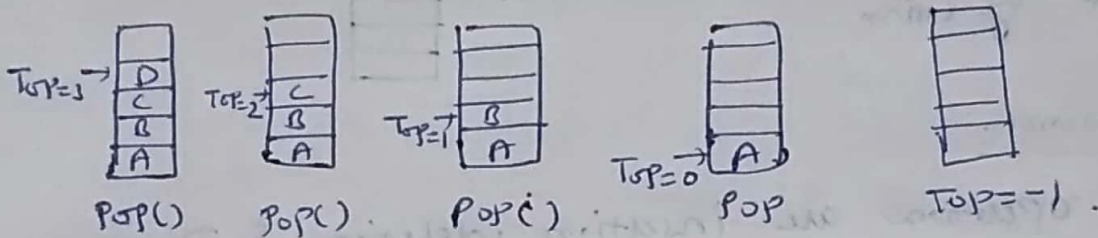 Top=3 → D
C
B
A
Pop()
Top=2 → C
B
A
Pop()
Top=1 → B
A
Pop()
Top=0 → A
Pop
Top=-1.